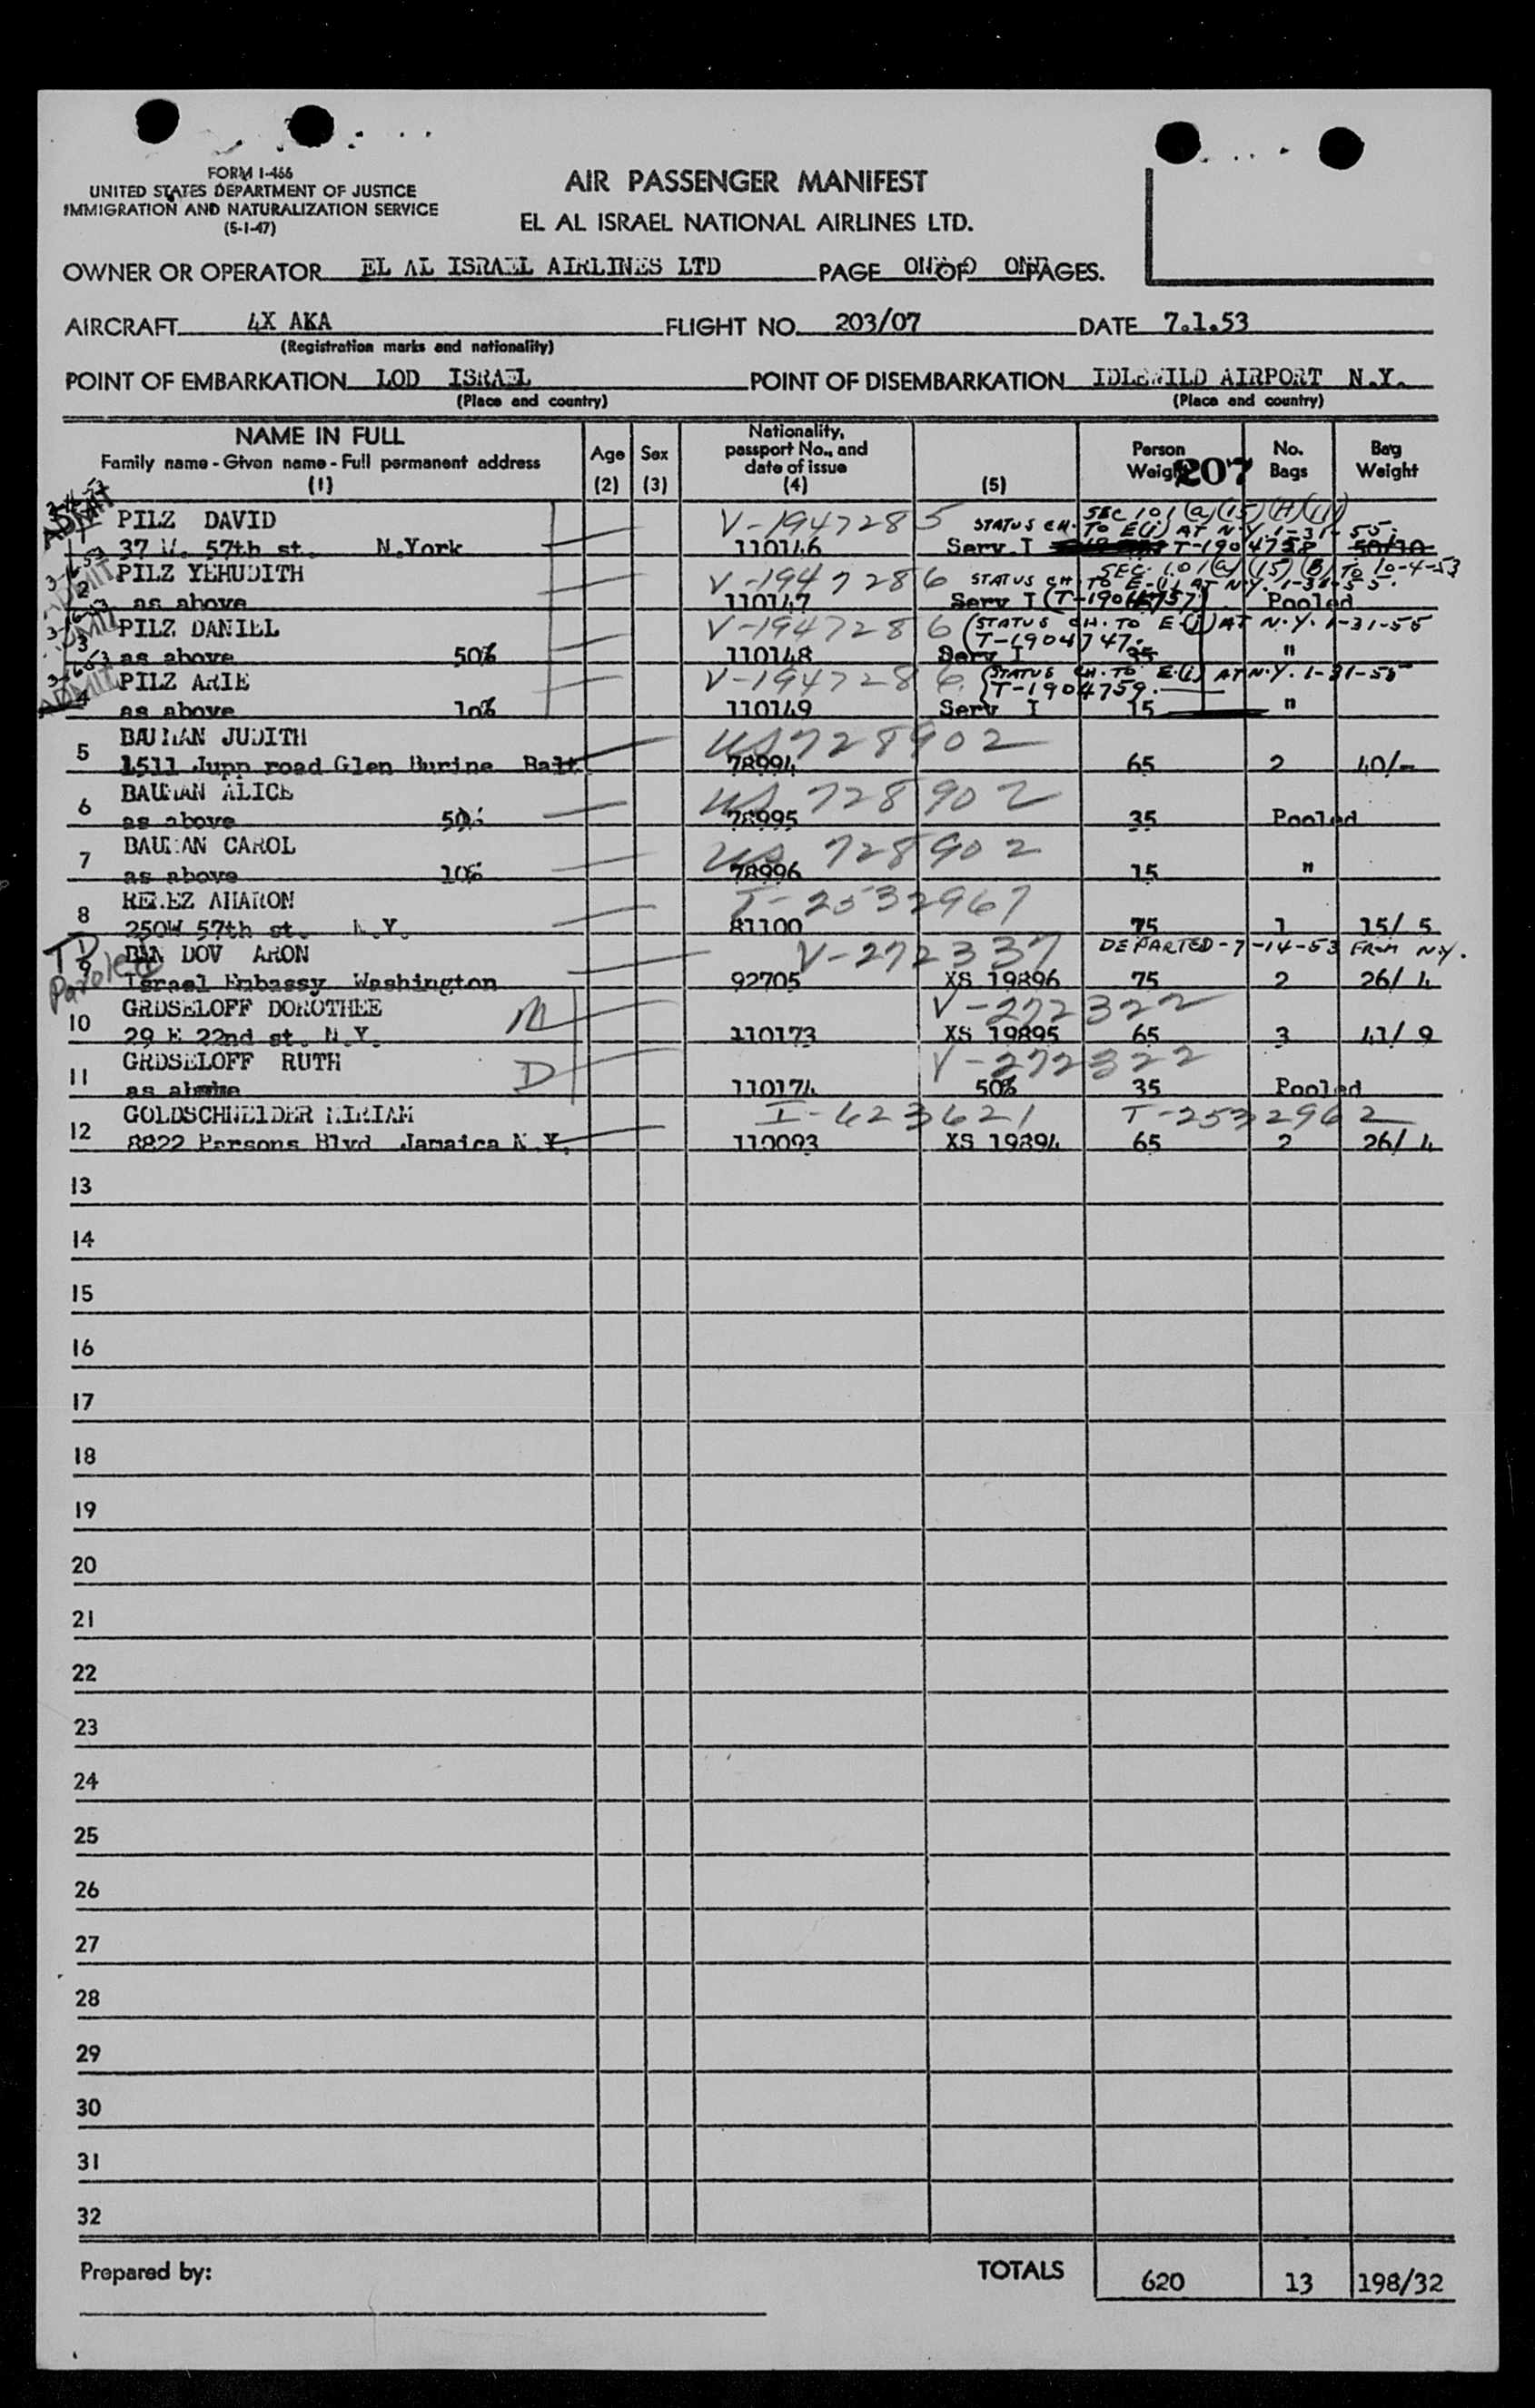 FORM I-466
UNITED STATES DEPARTMENT OF JUSTICE
IMMIGRATION AND NATURALIZATION SERVICE
(5-1-47)
AIR PASSENGER MANIFEST
EL AL ISRAEL NATIONAL AIRLINES LTD.
OWNER OR OPERATOR EL AL ISRAEL AIRLINES LTD PAGE ONE OF ONE PAGES.
AIRCRAFT 4X AKA FLIGHT NO. 203/07 DATE 7.1.53
(Registration marks and nationality)
POINT OF EMBARKATION LOD ISRAEL POINT OF DISEMBARKATION IDLEWILD AIRPORT N.Y.
(Place and country) (Place and country)
NAME IN FULL
Family name - Given name - Full permanent address
(1)
Age
(2)
Sex
(3)
Nationality,
passport No., and
date of issue
(4)
(5)
Person
Weight
207
No.
Bags
Bag
Weight
ADMIT PILZ DAVID V-1947285 SEC 101(a)(15)(H)(iii)
STATUS CH. TO E(i) AT N.Y. 1-31-55.
37 W. 57th st. N.York 110146 Serv. I T-1904758 50/30
3-6-53 ADMIT 2 PILZ YEHUDITH V-1947286 SEC. 101(a)(15)(B) TO 10-4-53
STATUS CH. TO E-(i) AT N.Y. 1-31-55.
as above 110147 Serv I (T-1904757) Pooled
3-6-53 ADMIT 3 PILZ DANIEL V-1947286 (STATUS CH. TO E(i) AT N.Y. 1-31-55
T-1904747.
as above 50% 110148 Serv I 35 "
3-6-53 ADMIT 4 PILZ ARIE V-1947286 (STATUS CH. TO E(i) AT N.Y. 1-31-55
T-1904759.
as above 10% 110149 Serv I 15 "
5 BAUMAN JUDITH US 728902
1511 Jupp road Glen Burine Balt 78994 65 2 40/-
6 BAUMAN ALICE US 728902
as above 50% 78995 35 Pooled
7 BAUMAN CAROL US 728902
as above 10% 78996 15 "
8 REMEZ AHARON T-2532967
250W 57th st. N.Y. 81100 75 1 15/ 5
TD Paroled 9 BEN DOV ARON V-272337 DEPARTED-7-14-53 FROM N.Y.
Israel Embassy Washington 92705 XS 19896 75 2 26/ 4
10 GRDSELOFF DOROTHEE M V-272322
29 E 22nd st. N.Y. 110173 XS 19895 65 3 41/ 9
11 GRDSELOFF RUTH D V-272322
as above 110174 50% 35 Pooled
12 GOLDSCHNEIDER MIRIAM I-623621 T-2532962
8822 Parsons Blvd Jamaica N.Y. 110093 XS 19894 65 2 26/ 4
13
14
15
16
17
18
19
20
21
22
23
24
25
26
27
28
29
30
31
32
Prepared by: TOTALS 620 13 198/32